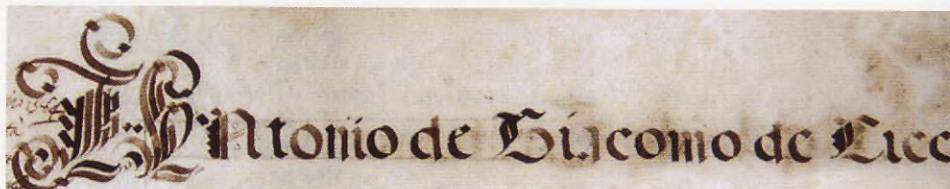 Antonio de Giacomo de Cice